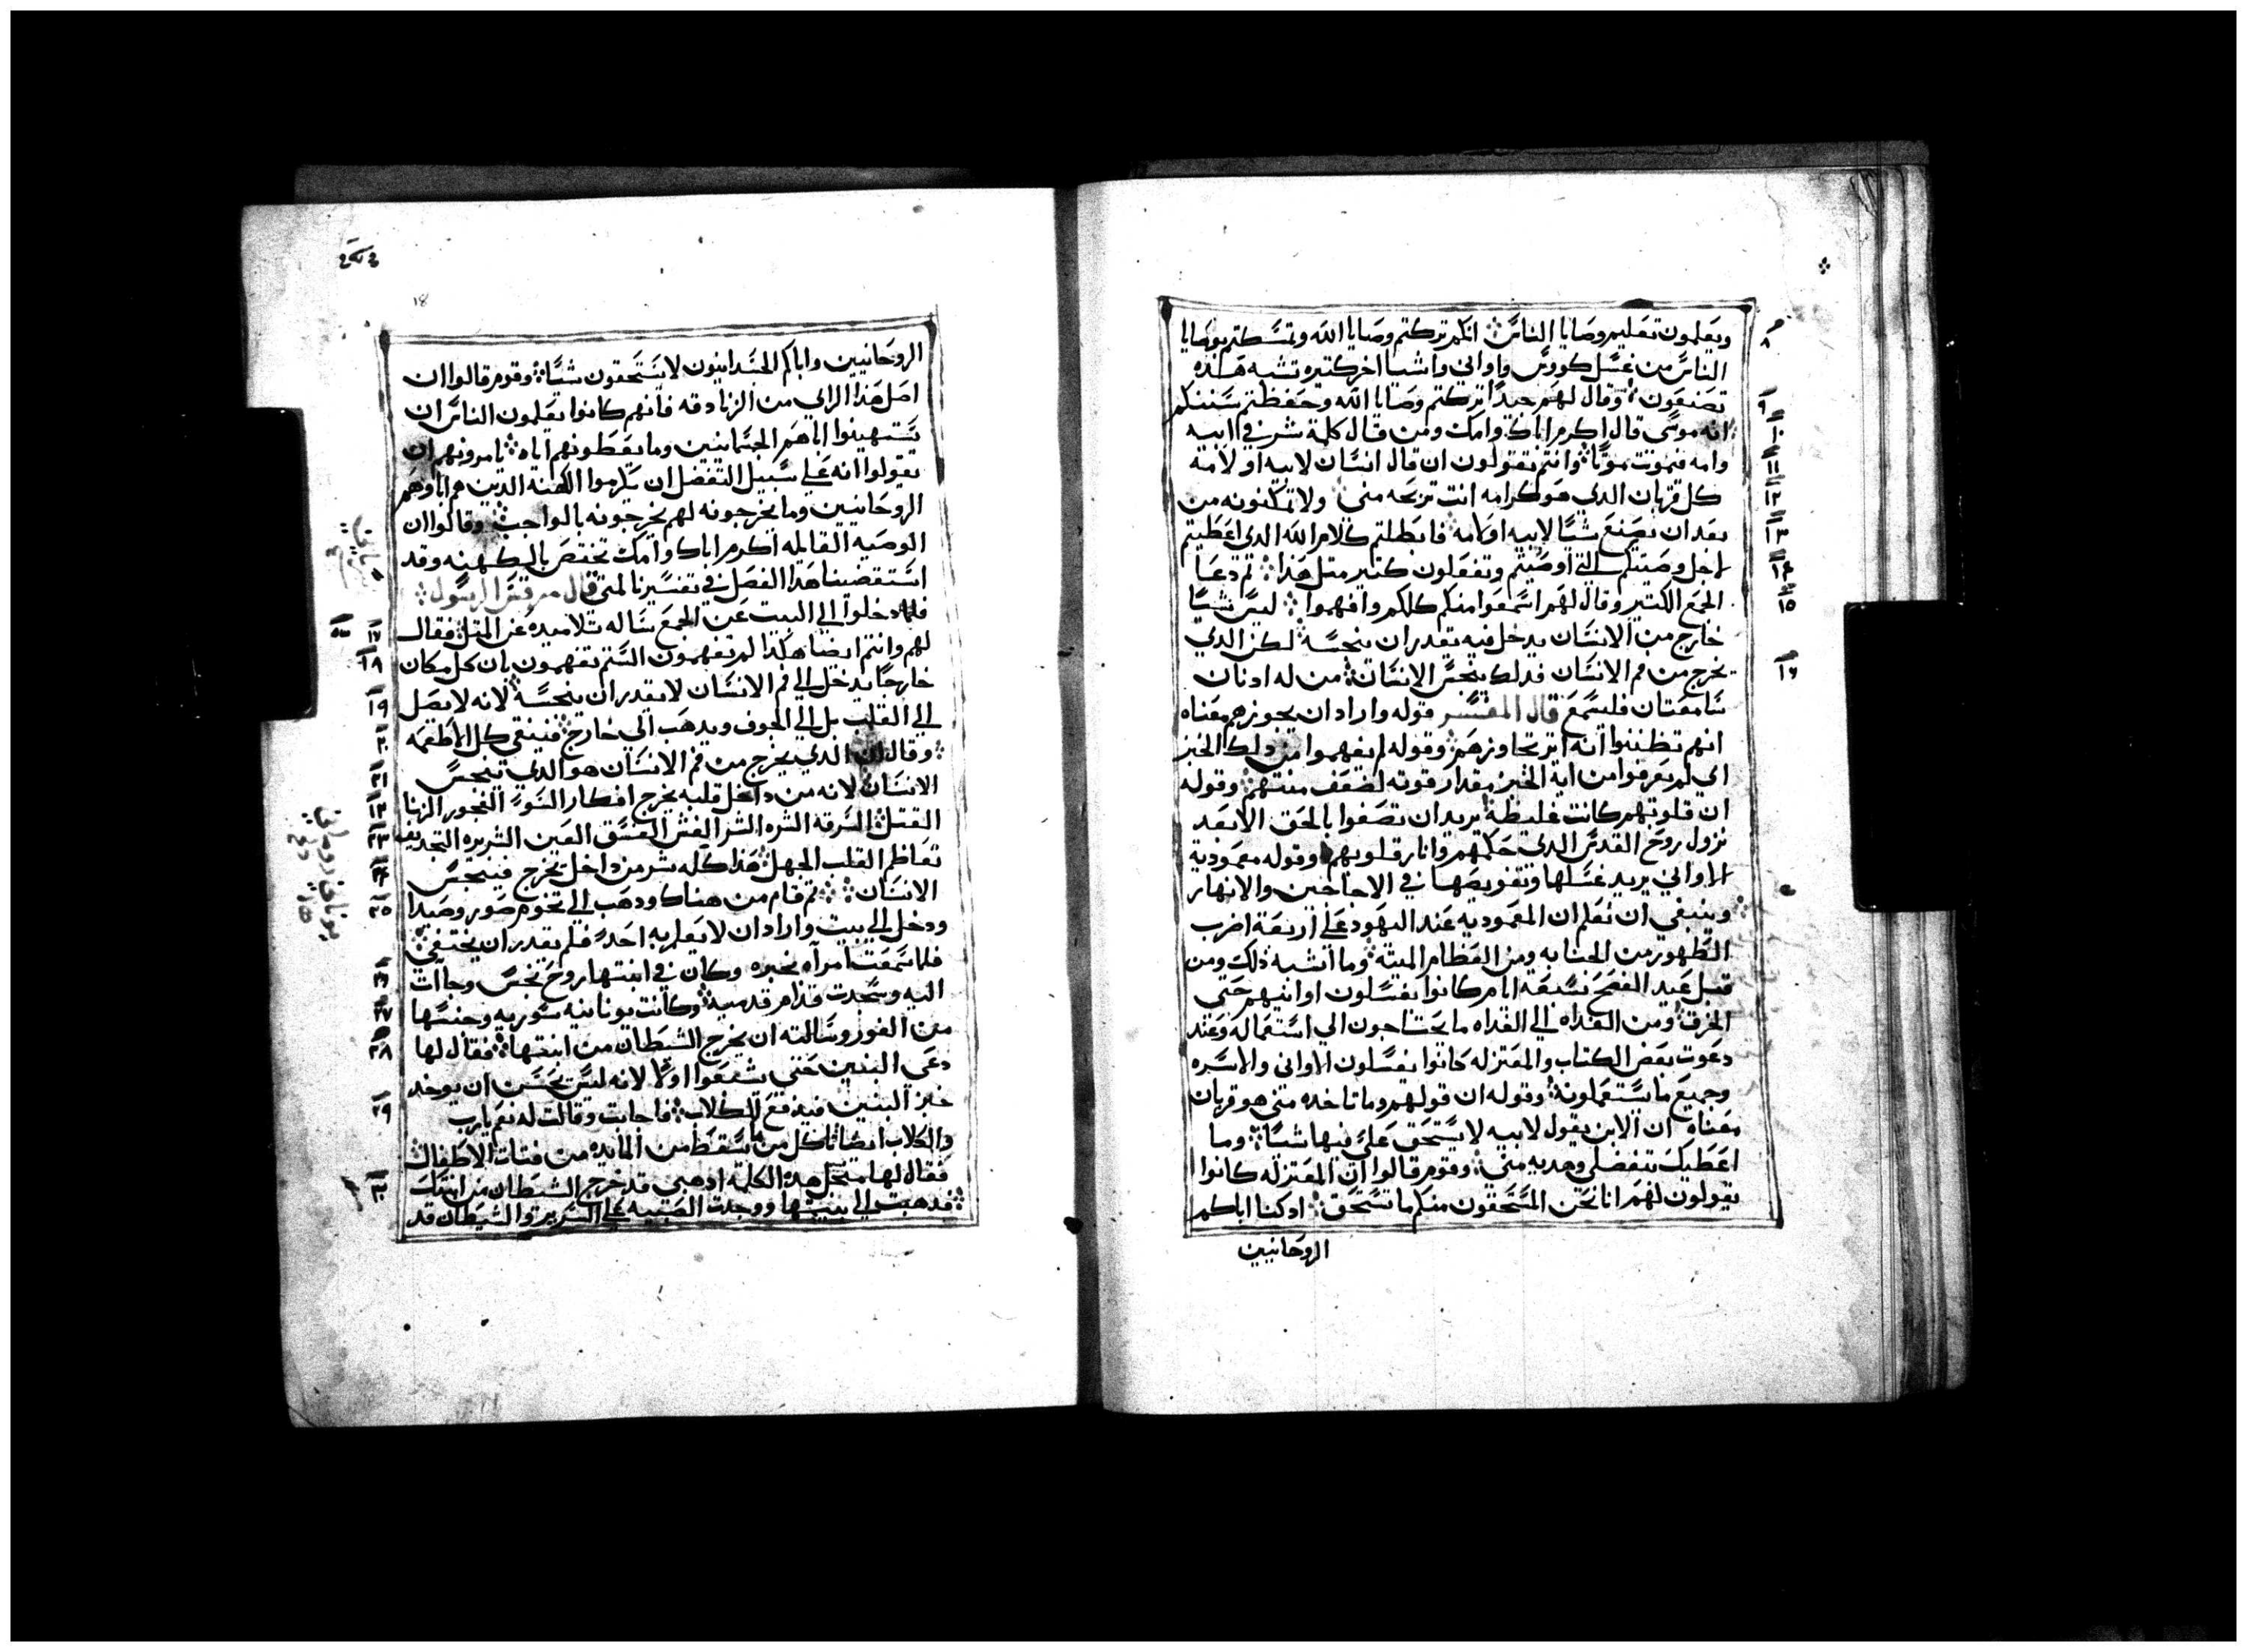 ويعلمون تعليم وصايا الناس انكم تركتم وصايا الله وتمسكتم بوصايا
الناس من غسل كووس واواني واشيا اخر كتيره تشبه هذه
تصنعون وقال لهم جيدا تركتم وصايا الله وحفظتم سننكم
انه موسى قال اكرم اباك وامك ومن قال كلمة شر في ابيه
وامه فيموت موتا وانتم تقولون ان قال انسان لابيه او لامه
كل قربان الدي هو كرامه انت تربحه مني ولا تمكنونه من
بعد ان يصنع شيا لابيه او لامه فابطلتم كلام الله الدي اعطيتم
لاجل وصيتكم التي اوصيتم وتفعلون كتير متل هدا تم دعا
الجمع الكتير وقال لهم اسمعوا منكم كلكم وافهموا ليس شيا
خارج من الانسان يدخل فيه يقدر ان ينجسه لكن الدي
يخرج من فم الانسان فدلك ينجس الانسان من له ادنان
سامعتان فليسمع قال المفسر قوله واراد ان يجوزهم معناه
انهم تظننوا انه اتر تجاوزهم وقوله لم يفهموا من دلك الخبز
اي لم يعرفوا من اية الخبز مقدار قوته لضعف منتهم وقوله
ان قلوبهم كانت غليظة يريد ان تصفوا بالحق الا بعد
نزول روح القدس الدي حكمهم وانار قلوبهم وقوله معمودية
الاواني يريد غسلها وتغويصها في الاجاجين والانهار
وينبغي ان نعلم ان المعموديه عند اليهود على اربعة اضرب
الطهور من الجنابه ومن العظام الميتة وما اشبه دلك ومن
قبل عيد الفصح بسبعة ايام كانوا يغسلون اوانيهم حتى
الخزف ومن الغداه الى الغداه ما يحتاجون الى استعماله وعند
دعوت بعض الكتاب والمعتزله كانوا يغسلون الاواني والاسره
وجميع ما يستعملونه وقوله ان قولهم وما تاخده متي هو قربان
معناه ان الابن يقول لابيه لا يستحق علي فيها شيا وما
اعطيك تتفضلي وهديه مني وقوم قالوا ان المعتزله كانوا
يقولون لهم انا نحن المستحقون منكم ما تستحق ادكنا اباكم
الروحانيين
الروحانيين واباكم الجسدانيون لا يستحقون شيا وقوم قالوا ان
اصل هدا الراي من الزنادقه فانهم كانوا يعلمون الناس ان
يستهينوا اباهم الجسمانيين وما يعطونهم اياه يامرونهم ان
يقولوا انه على سبيل التفضل ان يكرموا الكهنه الدين هم اباوهم
الروحانيين وما يخرجونه لهم يخرجونه بالواجب وقالوا ان
الوصيه القايله اكرم اباك وامك تختص بالكهنه وقد
استقصينا هدا الفصل في تفسيرنا لمتى قال مرقس الرسول
فلما دخلوا الى البيت عن الجمع ساله تلاميده عن المتل فقال
لهم وانتم ايضا هكدا لم تفهمون الستم تفهمون بان كل مكان
خارجا يدخل الى فم الانسان لا يقدر ان ينجسه لانه لا يصل
الى القلب بل الى الجوف ويدهب الى خارج فينقي كل الاطعمه
وقال ان الدي يخرج من فم الانسان هو الدي ينجس
الانسان لانه من داخل قلبه يخرج افكار السو الفجور الزنا
القتل السرقه الشره الشر الغش الفسق العين الشريره التجديف
تعاظم القلب الجهل هدا كله شر من داخل يخرج فينجس
الانسان تم قام من هناك ودهب الى تخوم صور وصيدا
ودخل الى بيت واراد ان لا يعلم به احد فلم يقدر ان يختفي
فلما سمعت امراه بخبره وكان في ابنتها روح نجس وجاات
اليه وسجدت قدام قدميه وكانت يونانيه سوريه وجنسها
من الغور وسالته ان يخرج الشيطان من ابنتها فقال لها
دعي البنين حتى يشبعوا اولا لانه ليس يحسن ان يوخد
خبز البنين فيدفع للكلاب فاجابت وقالت له نعم يارب
والكلاب ايضا تاكل من ما يسقط من المايده من فتات الاطفال
فقال لها من اجل هده الكلمة ادهبي قد خرج الشيطان من ابنتك
فدهبت الى بيتها ووجدت الصبيه على السرير والشيطان قد